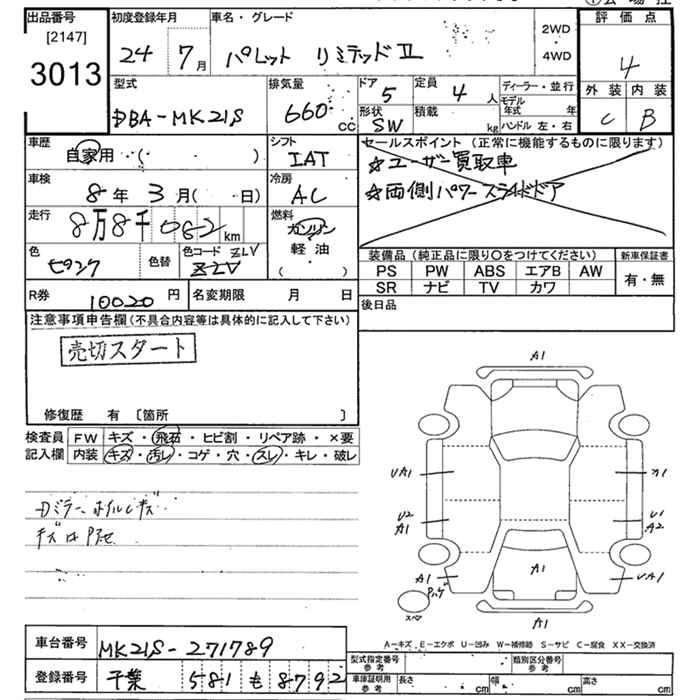 出品番号 初度登録年月 車名・グレード 2WD 評価点
[2147]
3013 24 7月 パレット リミテッドII 4WD 4
型式 排気量 ドア 5 定員 4人 ディーラー・並行 外装 内装
DBA-MK21S 660cc 形状 SW 積載 kg モデル年式 年 C B
ハンドル 左・右
車歴 シフト セールスポイント(正常に機能するものに限ります)
自家用( ) IAT ☆ユーザー買取車
車検 8年3月( 日) 冷房 AC ☆両側パワースライドドア
走行 8万8千082km 燃料 ガソリン
軽・油
( )
色 ピンク 色替 色コード ZLV 装備品(純正品に限り○をつけてください) 新車保証書
ZLV PS PW ABS エアB AW 有・無
R券 10020円 名変期限 月 日 SR ナビ TV カワ
注意事項申告欄(不具合内容等は具体的に記入して下さい) 後日品
売切スタート
修復歴 有〔箇所 〕
検査員 FW キズ・飛石・ヒビ割・リペア跡・×要
記入欄 内装 キズ・汚レ・コゲ・穴・スレ・キレ・破レ
A1
UA1 A1
U2 U1
A1 A2
A1 A1 UA1
スペア A1
A-キズ E-エクボ U-凹み W-補修跡 S-サビ C-腐食 XX-交換済
車台番号 MK21S-271789 型式指定番号 参考 類別区分番号 参考
登録番号 千葉 581 も 8792 車庫証明用 参考 長さ cm 幅 cm 高さ cm